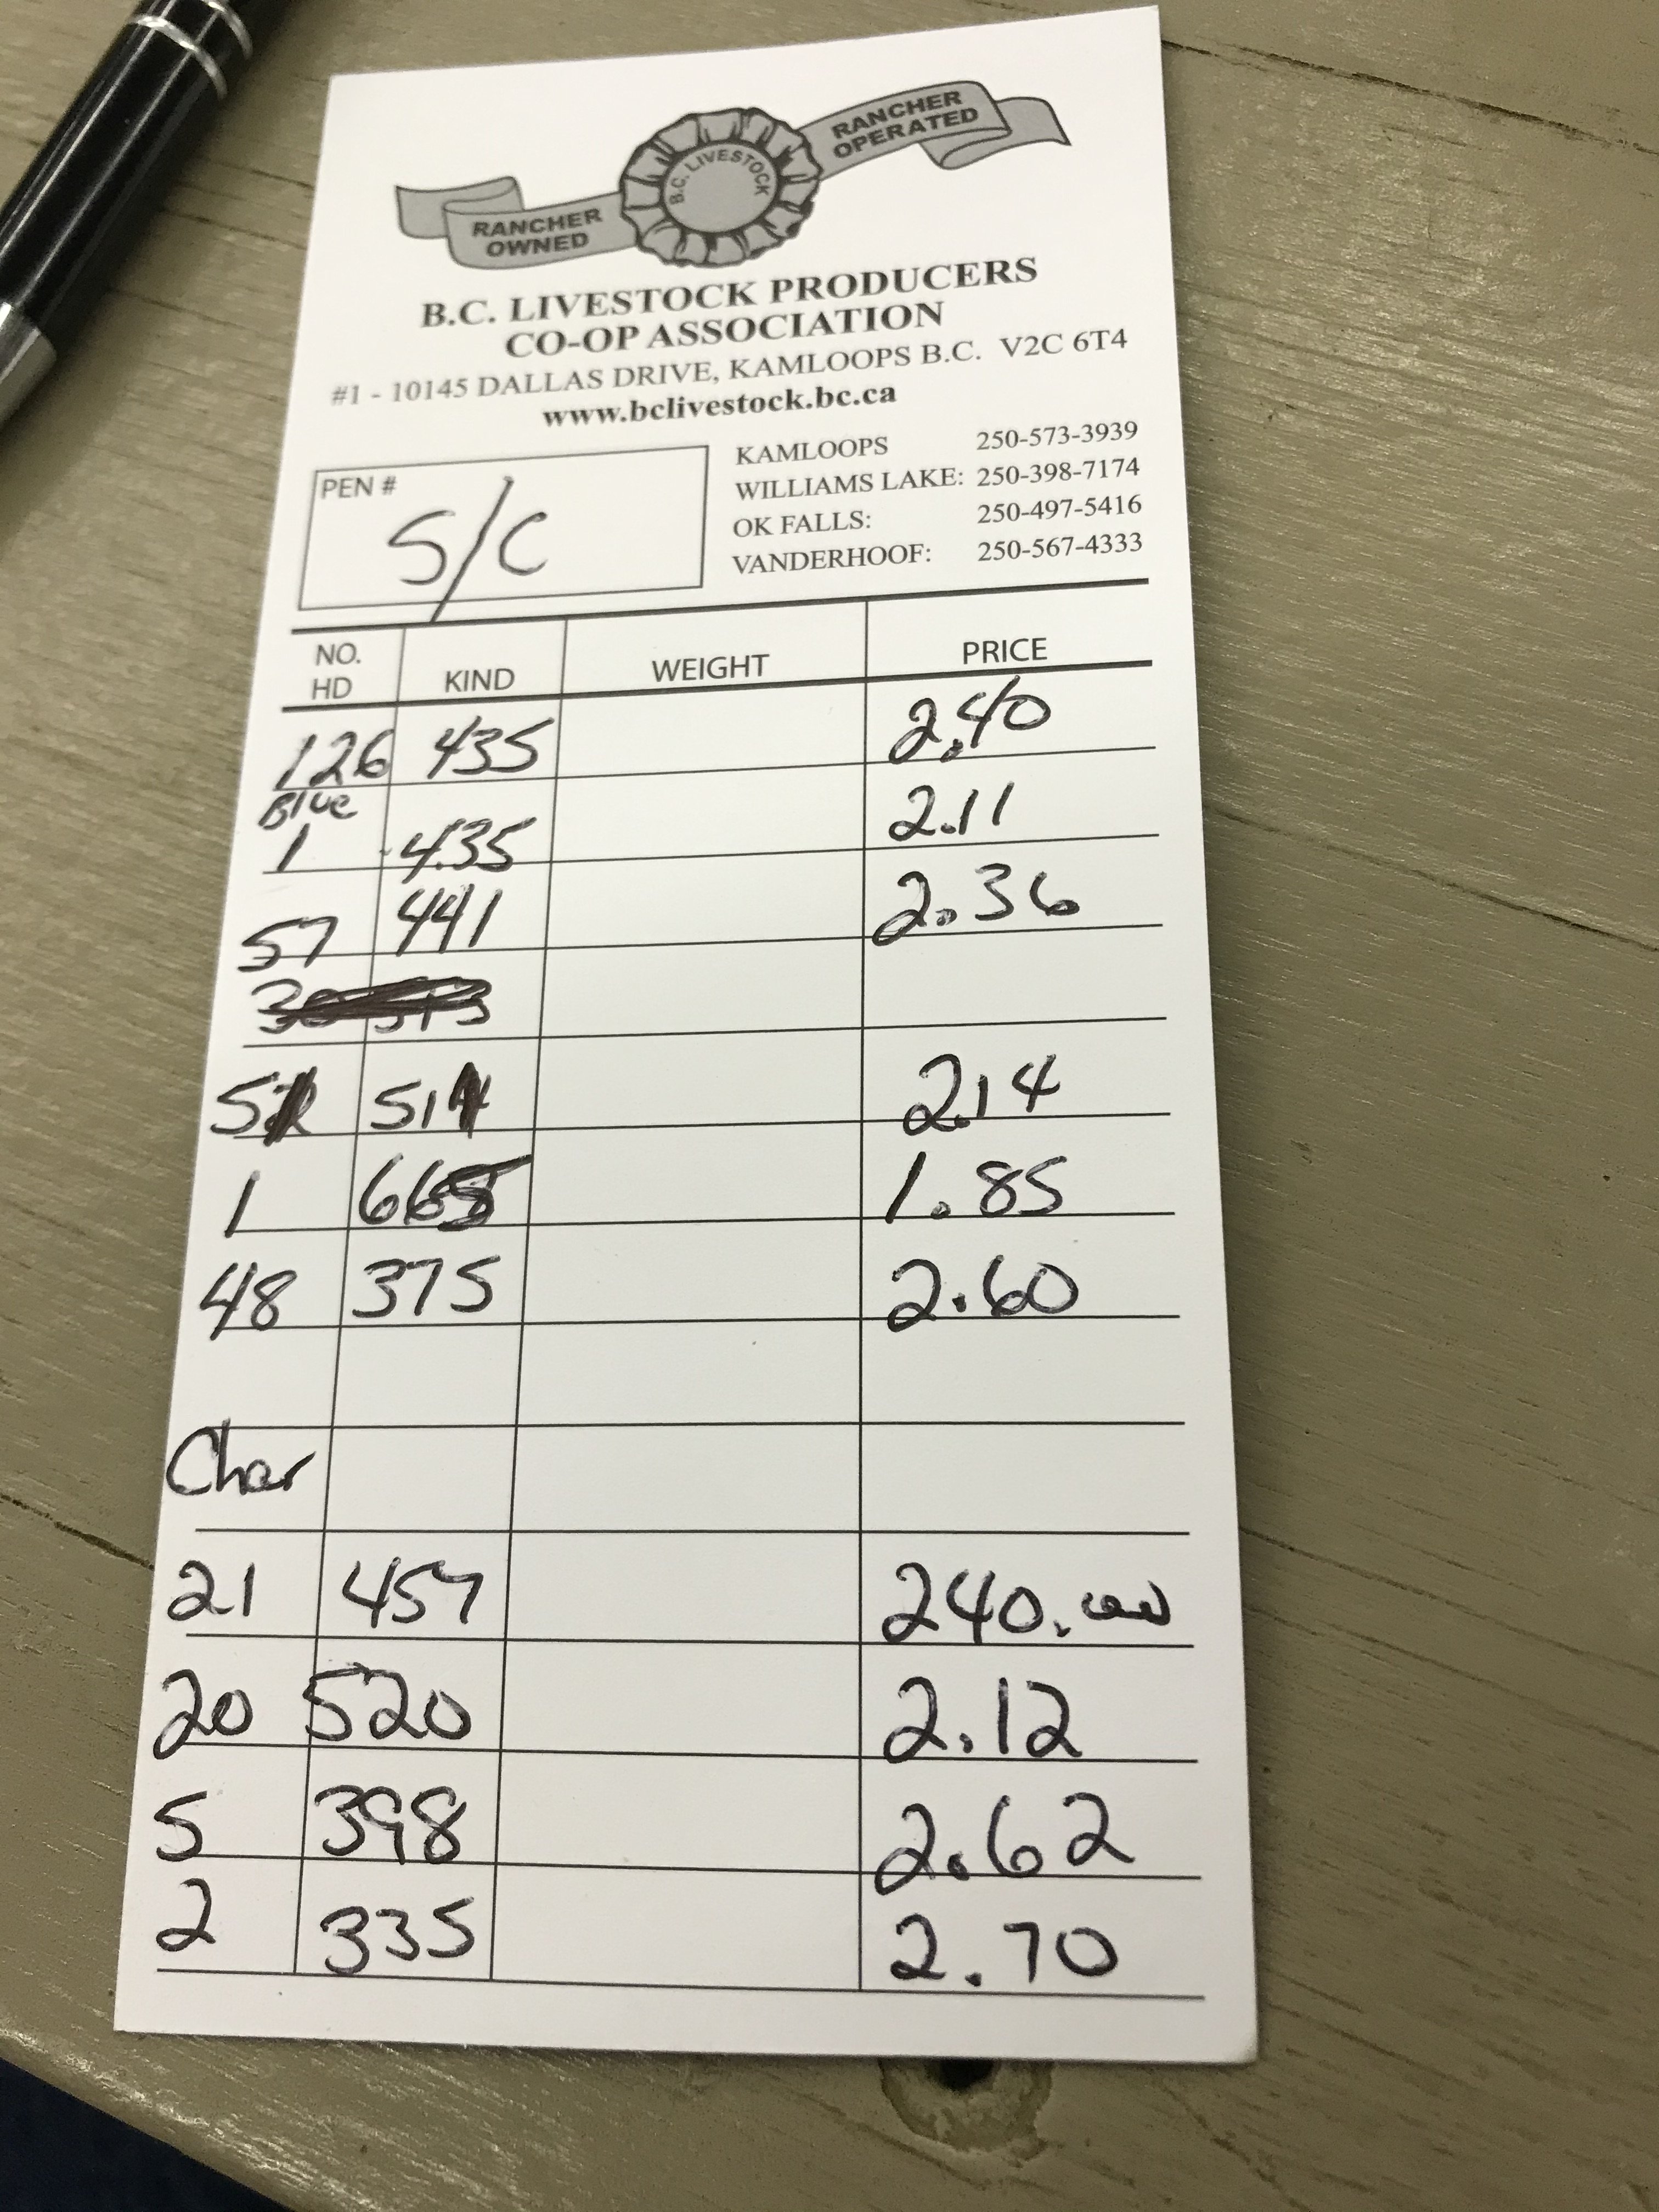 RANCHER OPERATED
B.C. LIVESTOCK
RANCHER OWNED
B.C. LIVESTOCK PRODUCERS
CO-OP ASSOCIATION
#1 - 10145 DALLAS DRIVE, KAMLOOPS B.C. V2C 6T4
www.bclivestock.bc.ca
PEN #
S/C
KAMLOOPS 250-573-3939
WILLIAMS LAKE: 250-398-7174
OK FALLS: 250-497-5416
VANDERHOOF: 250-567-4333
NO. HD KIND WEIGHT PRICE
126 435 2.40
Blue
1 435 2.11
57 441 2.36
2.14
1 1.85
48 375 2.60
Char
21 457 240.00
20 520 2.12
5 398 2.62
2 335 2.70